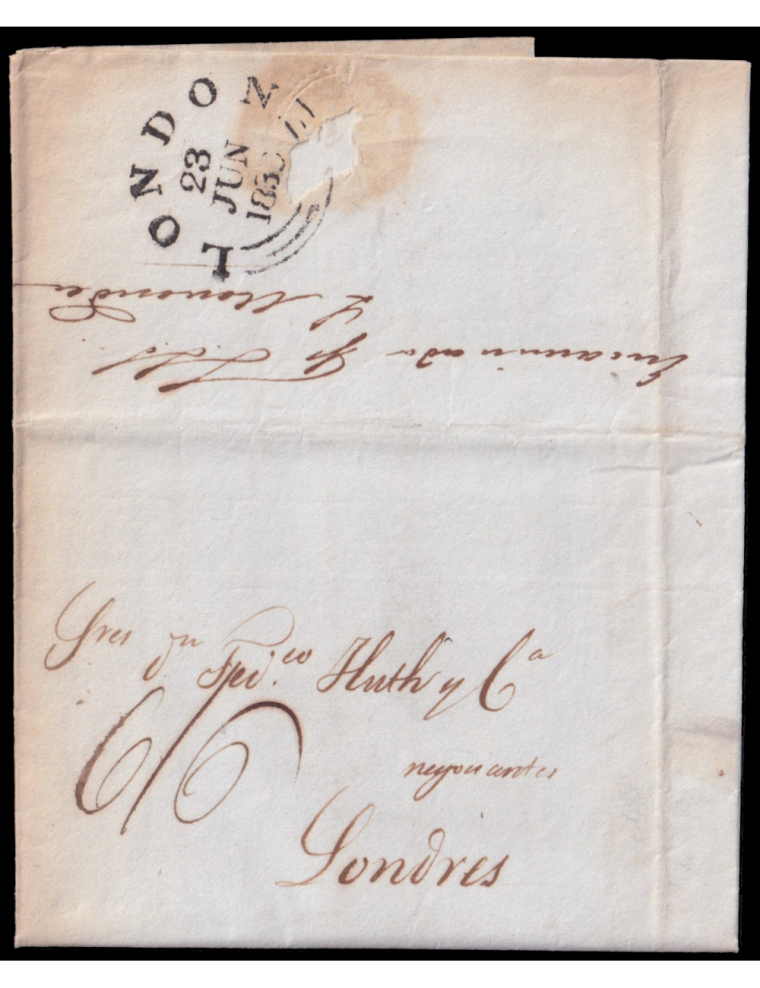 LONDON
23
JUN
Encaminada Pr
Sres dn Fedco Huth y Ca
6/6
negociantes
Londres